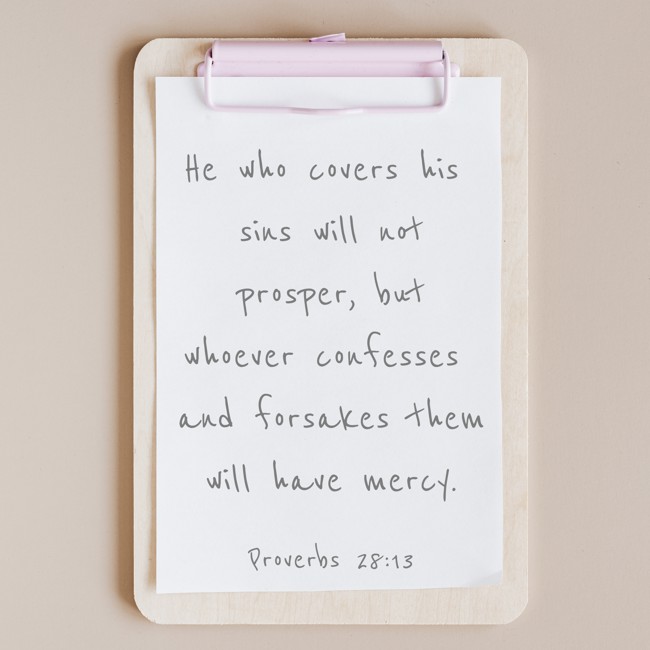 He who covers his
sins will not
prosper, but
whoever confesses
and forsakes them
will have mercy.
Proverbs 28:13